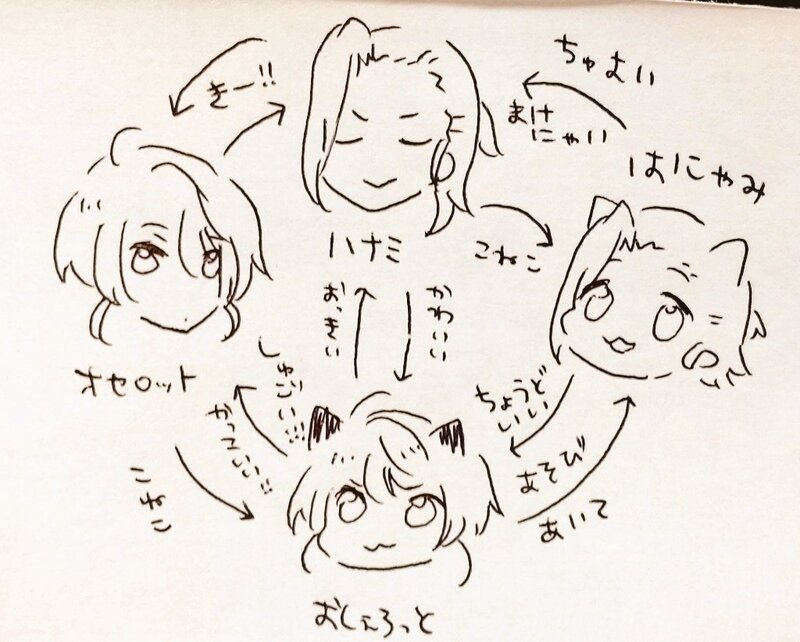 ちゅよい
きー!!
まけ
にゃい
はにゃみ
ハナミ
こねこ
おっきい
かわいい
オセロット
しゅごい!!!
かっこいい!!
ちょうど
いい
こねこ
あそび
あいて
おしぇろっと